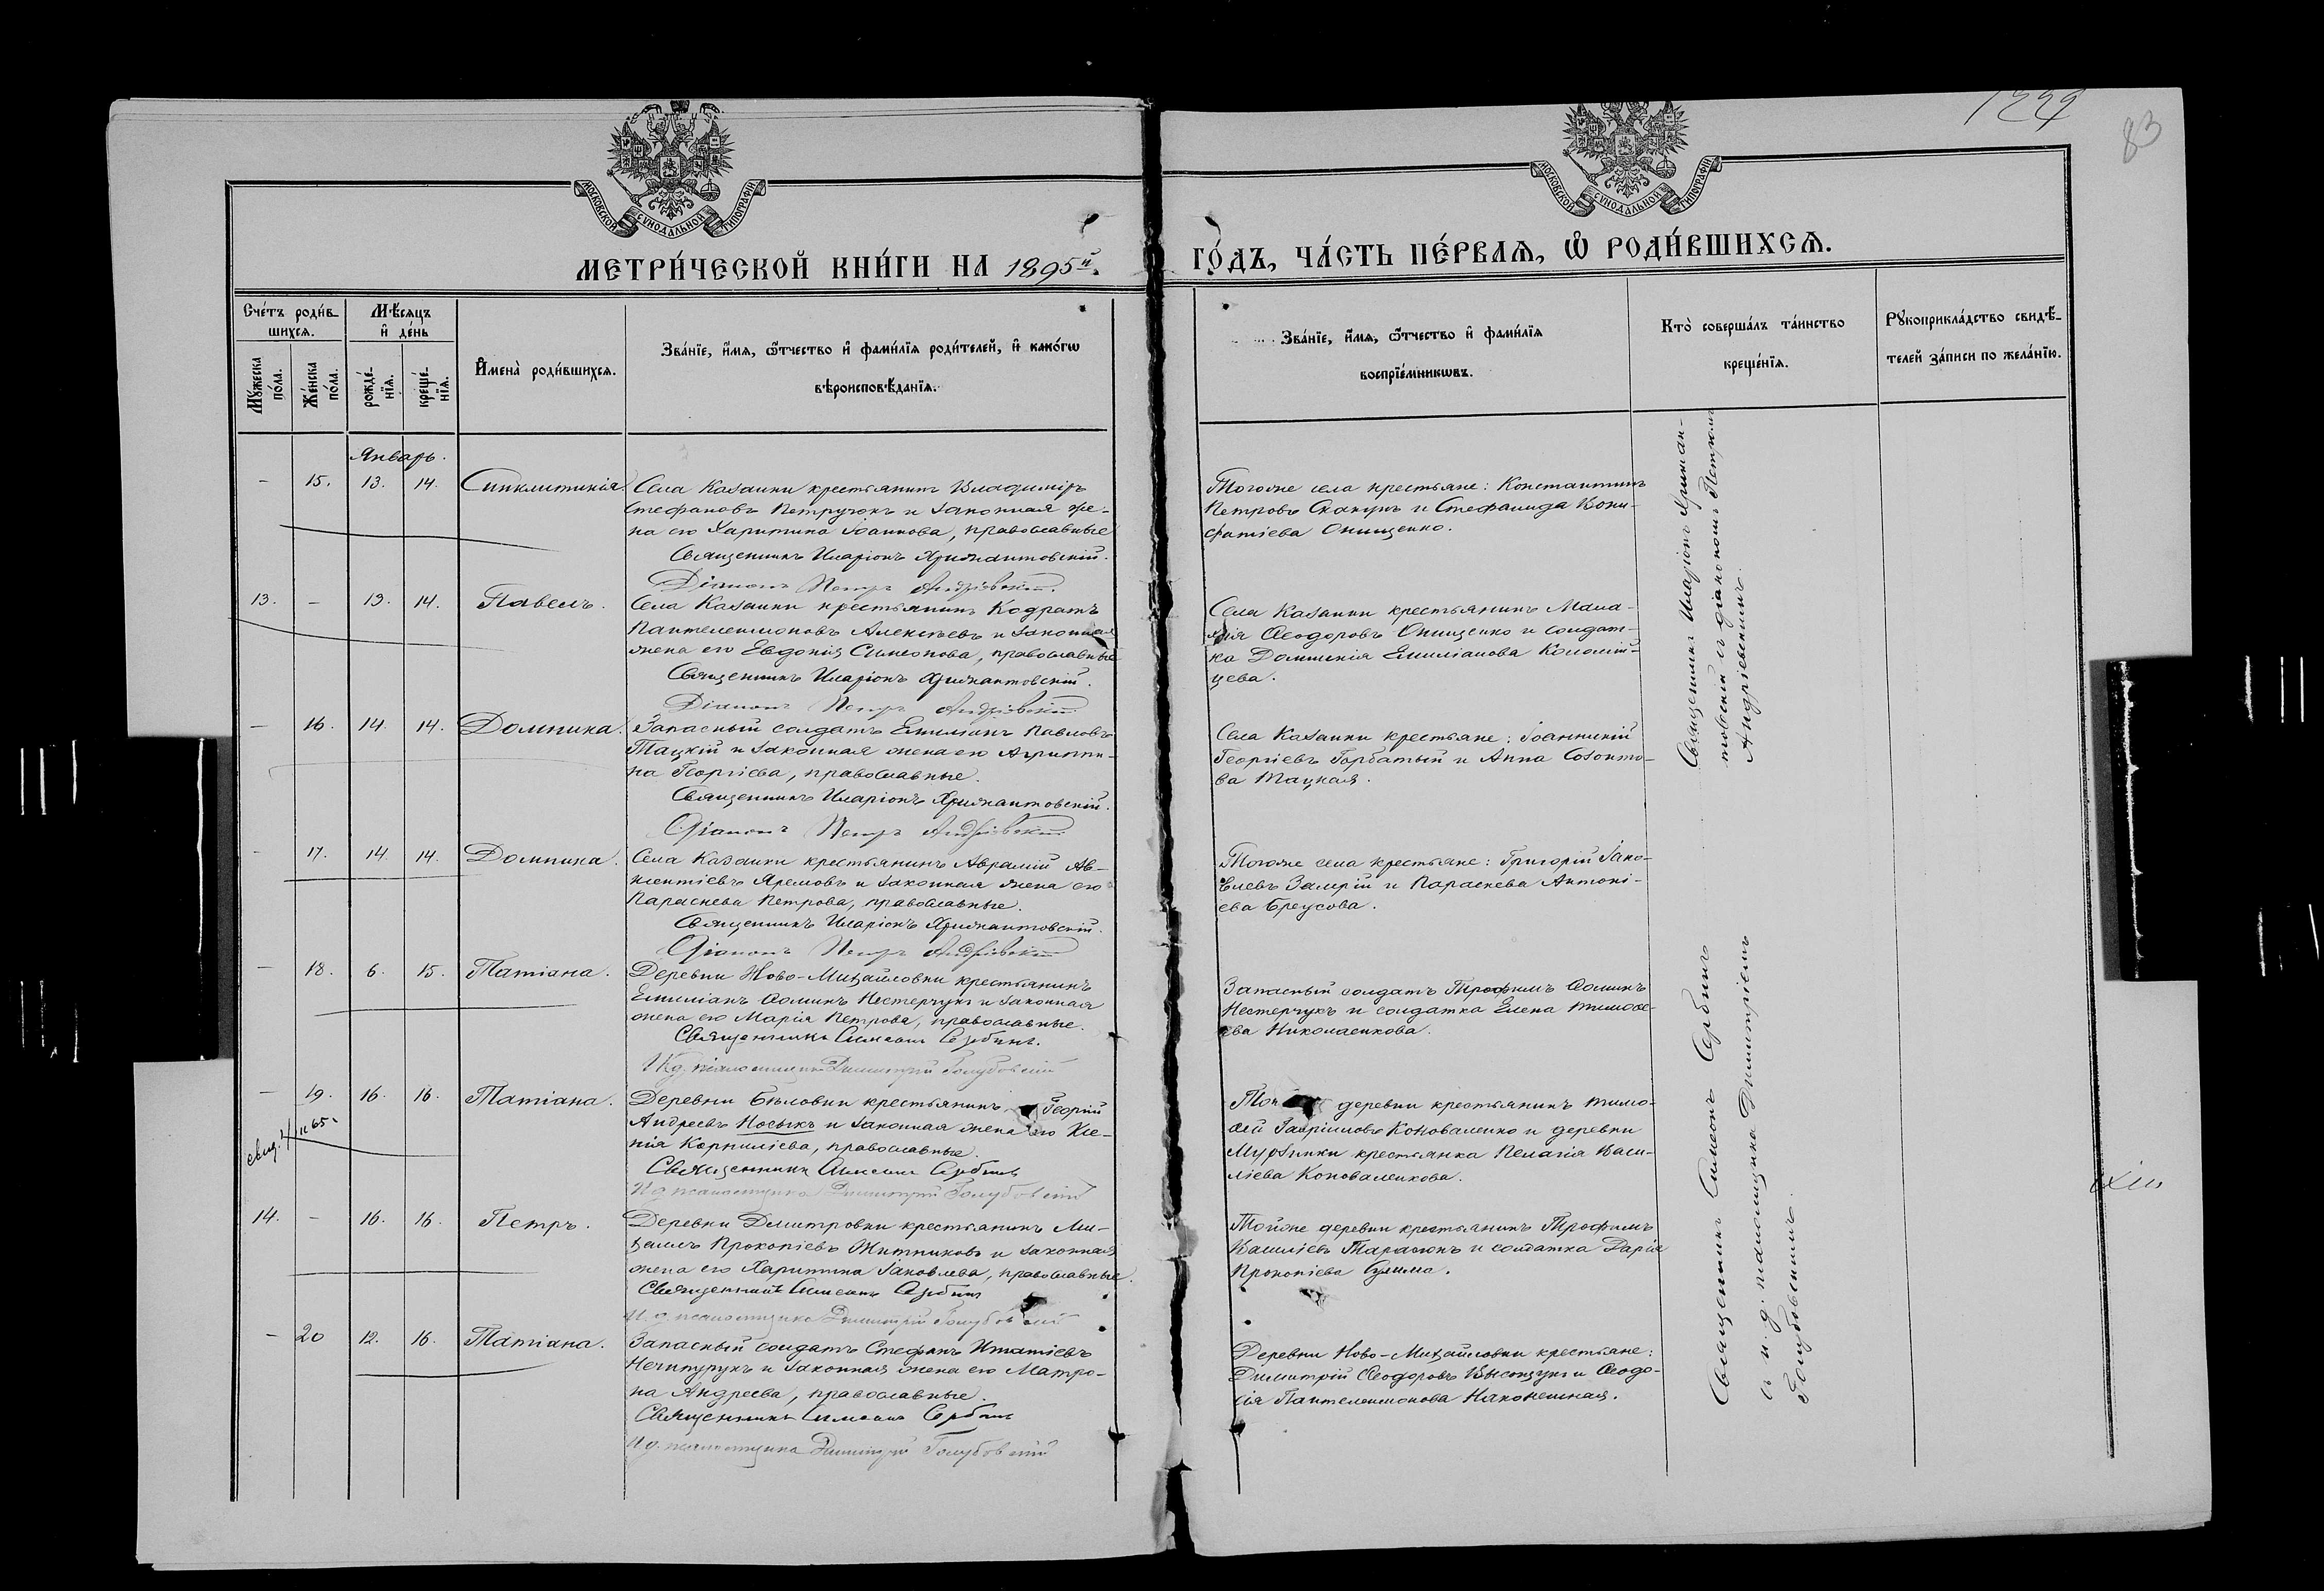 1229
83
МОСКОВСКОЙ СѴНОДАЛЬНОЙ ТИПОГРАФІИ
МОСКОВСКОЙ СѴНОДАЛЬНОЙ ТИПОГРАФІИ
МЕТРИ́ЧЕСКОЙ КНИ́ГИ НА 1895й.
ГО́ДЪ, ЧА́СТЬ ПЕ́РВАѦ, Ѡ҆ РОДИ́ВШИХСѦ.
Сче́тъ роди́в-
шихсѧ.
Мѣ́сѧцъ
и҆ де́нь
Мꙋ́жеска
по́ла.
Же́нска
по́ла.
рожде́-
нїѧ.
креще́-
нїѧ.
И҆мена̀ роди́вшихсѧ.
Зва́нїе, и҆́мѧ, ѻ҆́тчество и҆ фами́лїѧ роди́телей, и҆ како́гѡ
вѣроисповѣ́данїѧ.
Зва́нїе, и҆́мѧ, ѻ҆́тчество и҆ фами́лїѧ
воспрїе́мникѡвъ.
Кто̀ соверша́лъ та́инство
креще́нїѧ.
Рꙋкоприкла́дство свидѣ́-
телей за́писи по жела́нїю.
Январь.
- 15. 13. 14. Синклитикія.
Села Казанки крестьянинъ Владиміръ
Стефановъ Петручокъ и законная же-
на его Харитина Іоаннова, православные
Священникъ Иларіонъ Хрижантовскій.
Діаконъ Петръ Андріевскій.
Тогоже села крестьяне: Константинъ
Петровъ Скакунъ и Стефанида Вони-
фатіева Онищенко.
13. - 13. 14. Павелъ.
Села Казанки крестьянинъ Кодратъ
Пантелеимоновъ Алексѣевъ и законная
жена его Евдокія Симеонова, православные
Священникъ Иларіонъ Хрижантовскій.
Діаконъ Петръ Андріевскій.
Села Казанки крестьянинъ Мала-
хія Ѳеодоровъ Онищенко и солдат-
ка Домникія Емиліанова Коломій-
цева.
- 16. 14. 14. Домника.
Запасный солдатъ Емиліанъ Павловъ
Тацкій и законная жена его Агриппи-
на Георгіева, православные.
Священникъ Иларіонъ Хрижантовскій.
Діаконъ Петръ Андріевскій
Села Казанки крестьяне: Іоанникій
Георгіевъ Горбатый и Анна Созонто-
ва Тацкая.
- 17. 14. 14. Домника.
Села Казанки крестьянинъ Аврамій Ав-
ксентіевъ Яремовъ и законная жена его
Параскева Петрова, православные.
Священникъ Иларіонъ Хрижантовскій.
Діаконъ Петръ Андріевскій
Тогоже села крестьяне: Григорій Іако-
влевъ и Параскева Антоні-
ева Бреусова.
- 18. 6. 15. Татіана.
Деревни Ново-Михайловки крестьянинъ
Емиліанъ Ѳоминъ Нестерчукъ и законная
жена его Марія Петрова, православные.
Священникъ Симеонъ Сербинъ.
И д. псаломщика Димитрій Голубовскій
Запасный солдатъ Трофимъ Ѳоминъ
Нестерчукъ и солдатка Елена Тимоѳе-
ева Николаенкова.
- 19. 16. 16. Татіана.
Деревни Бѣловки крестьянинъ Георгій
Андреевъ Носыкъ и законная жена его Ксе-
нія Корниліева, православные.
Священникъ Симеонъ Сербинъ
И д. псаломщика Димитрій Голубовскій
деревни крестьянинъ Тимо-
ѳей Гавріиловъ Коноваленко и деревни
Мурзинки крестьянка Пелагія Васи-
ліева Коноваленкова.
14. - 16. 16. Петръ.
Деревни Дмитровки крестьянинъ Ми-
хаилъ Прокопіевъ Житниковъ и законная
жена его Харитина Іаковлева, православные.
Священникъ Симеонъ Сербинъ
И. д. псаломщика Димитрій Голубовскій
Тойже деревни крестьянинъ Трофимъ
Василіевъ Тарасюкъ и солдатка Дарія
Прокопіева
- 20 12. 16. Татіана.
Запасный солдатъ Стефанъ Игнатіевъ
Нечипурукъ и законная жена его Матро-
на Андреева, православные.
Священникъ Симеонъ Сербинъ
И д. псаломщика Димитрій Голубовскій
Деревни Ново-Михайловки крестьяне:
Димитрій Ѳеодоровъ и Ѳеодо-
сія Пантелеимонова Наконешная.
Священникъ Иларіонъ Хрижан-
товскій съ діакономъ Петромъ
Андріевскимъ.
Священникъ Симеонъ Сербинъ
съ и. д. псаломщика Димитріемъ
Голубовскимъ.